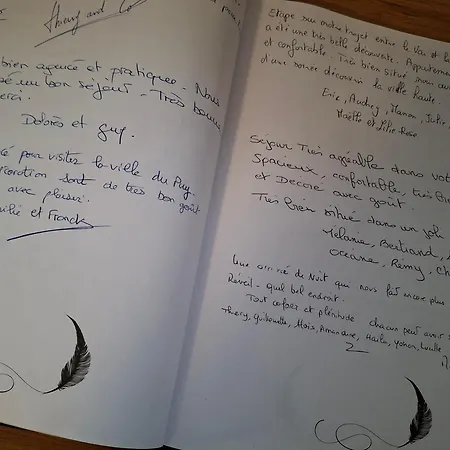 Thierry and Co
bien agencé et pratique. Nous
un bon séjour. Très bonne
Merci.
Dolorès et Guy.
pour visiter la ville du Puy
décoration sont de très bon goût
avec plaisir.
et Franck
Etape sur notre trajet entre le Var et
a été une très belle découverte. Appartement
et confortable. Très bien situé
d'une bonne découvrir la ville haute.
Eric, Audrey, Manon, Julie,
Maëlle et Lilie-Rose
Séjour Très agréable dans vot
Spacieux, confortable, très bie
et Décoré avec goût.
Très bien situé dans un joli
Mélanie, Bertrand,
Océane, Rémy, Ch
Une arrivée de Nuit qui nous fait encore plus
Réveil - quel bel endroit.
Tout confort et plénitude chacun peut avoir s
Thierry, Guillemette, Maïs, Amandine, Yohan,